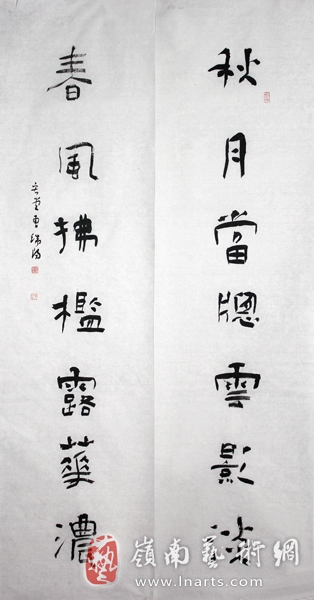 秋月當牕雲影淡
春風拂檻露華濃
藝
嶺南藝術網
www.lnarts.com